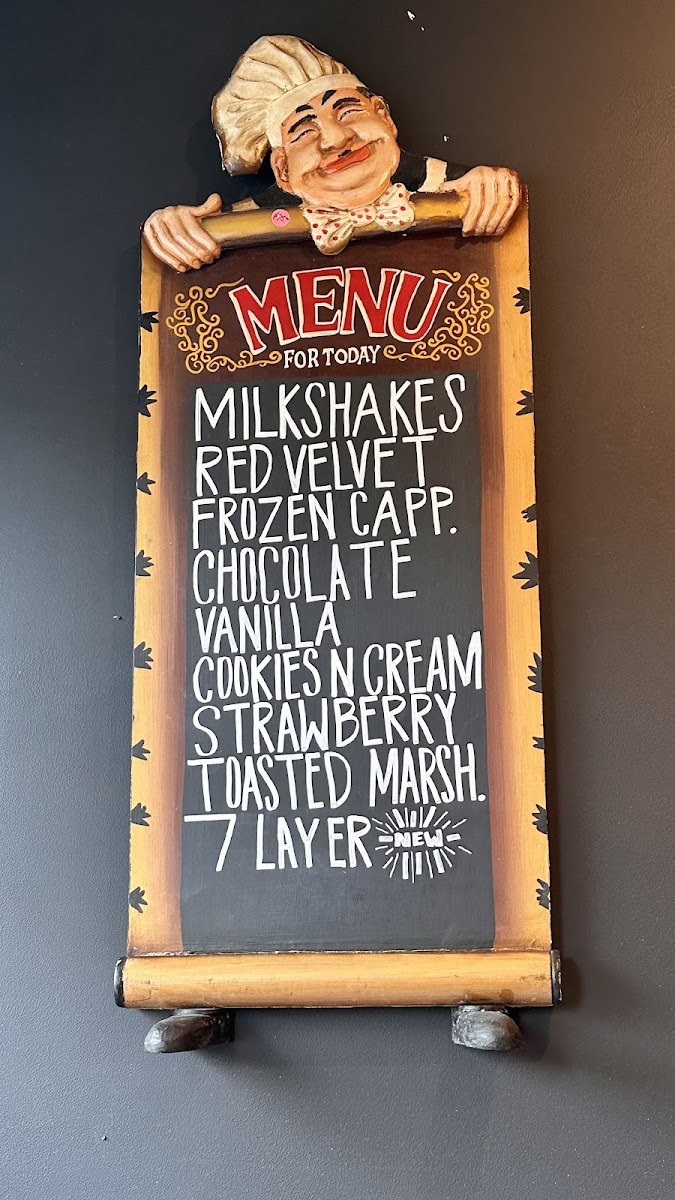 MENU
FOR TODAY
MILKSHAKES
RED VELVET
FROZEN CAPP.
CHOCOLATE
VANILLA
COOKIES N CREAM
STRAWBERRY
TOASTED MARSH.
7 LAYER NEW